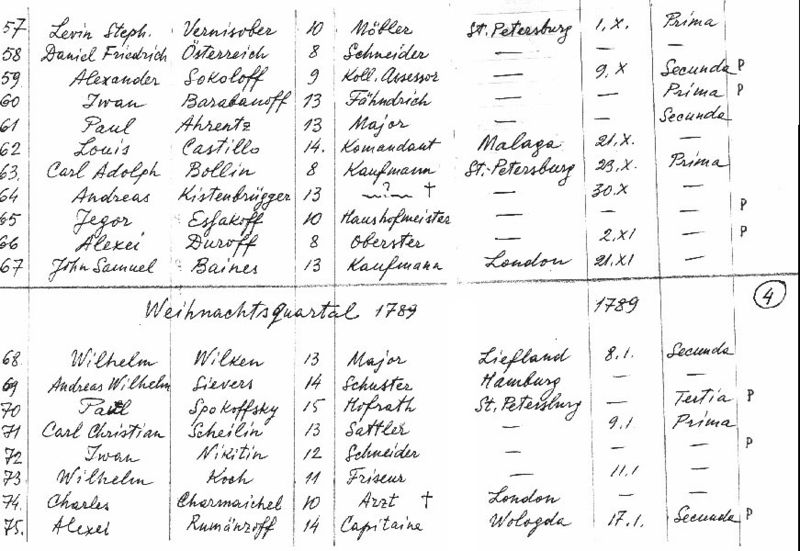 57 Levin Steph. Vernisober 10 Möbler St. Petersburg 1. X. Prima
58 Daniel Friedrich Österreich 8 Schneider — — —
59 Alexander Sokoloff 9 Koll. Assessor — 9. X Secunda P
60 Iwan Barabanoff 13 Fähndrich — — Prima P
61 Paul Ahrentz 13 Major — — Secunda
62 Louis Castillo 14. Komandant Malaga 21. X. —
63. Carl Adolph Bollin 8 Kaufmann St. Petersburg 23. X. Prima
64 Andreas Kistenbrügger 13 —?— † — 30. X —
65 Jegor Essakoff 10 Haushofmeister — — — P
66 Alexei Duroff 8 Oberster — 2. XI — P
67 John Samuel Baines 13 Kaufmann London 21. XI —
Weihnachtsquartal 1789 1789 4
68. Wilhelm Wilken 13 Major Liefland 8. 1. Secunda
69 Andreas Wilhelm Sievers 14 Schuster Hamburg — —
70 Paul Spokoffsky 15 Hofrath St. Petersburg — Tertia P
71 Carl Christian Scheilin 13 Sattler — 9. 1 Prima
72 Iwan Nikitin 12 Schneider — — — P
73 Wilhelm Koch 11 Friseur — 11. 1 —
74. Charles Charmaichel 10 Arzt † London — —
75. Alexei Rumänzoff 14 Capitaine Wologda 17. 1. Secunda P